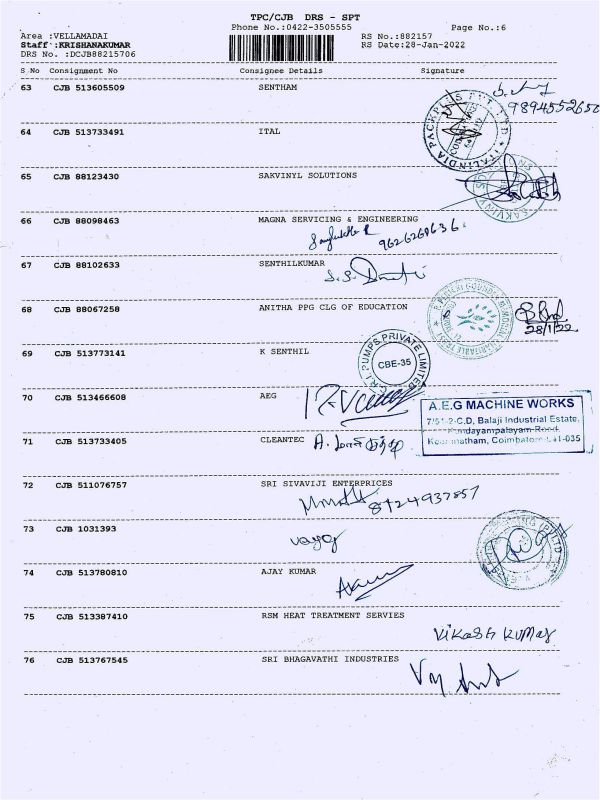 TPC/CJB DRS - SPT
Phone No.:0422-3505555
Page No.:6
Area :VELLAMADAI
Staff :KRISHANAKUMAR
DRS No. :DCJB88215706
RS No.:882157
RS Date:28-Jan-2022
S No Consignment No Consignee Details Signature
63 CJB 513605509 SENTHAM
9894552650
64 CJB 513733491 ITAL
65 CJB 88123430 SAKVINYL SOLUTIONS
66 CJB 88098463 MAGNA SERVICING & ENGINEERING
9626260636
67 CJB 88102633 SENTHILKUMAR
68 CJB 88067258 ANITHA PPG CLG OF EDUCATION
28/1/22
69 CJB 513773141 K SENTHIL
PUMPS PRIVATE LIMITED
CBE-35
70 CJB 513466608 AEG
A.E.G MACHINE WORKS
7/51-2-C,D, Balaji Industrial Estate,
Kundayampalayam Road,
Coimbatore-641-035
71 CJB 513733405 CLEANTEC
72 CJB 511076757 SRI SIVAVIJI ENTERPRICES
8124937857
73 CJB 1031393
74 CJB 513780810 AJAY KUMAR
75 CJB 513387410 RSM HEAT TREATMENT SERVIES
Vikash Kumar
76 CJB 513767545 SRI BHAGAVATHI INDUSTRIES